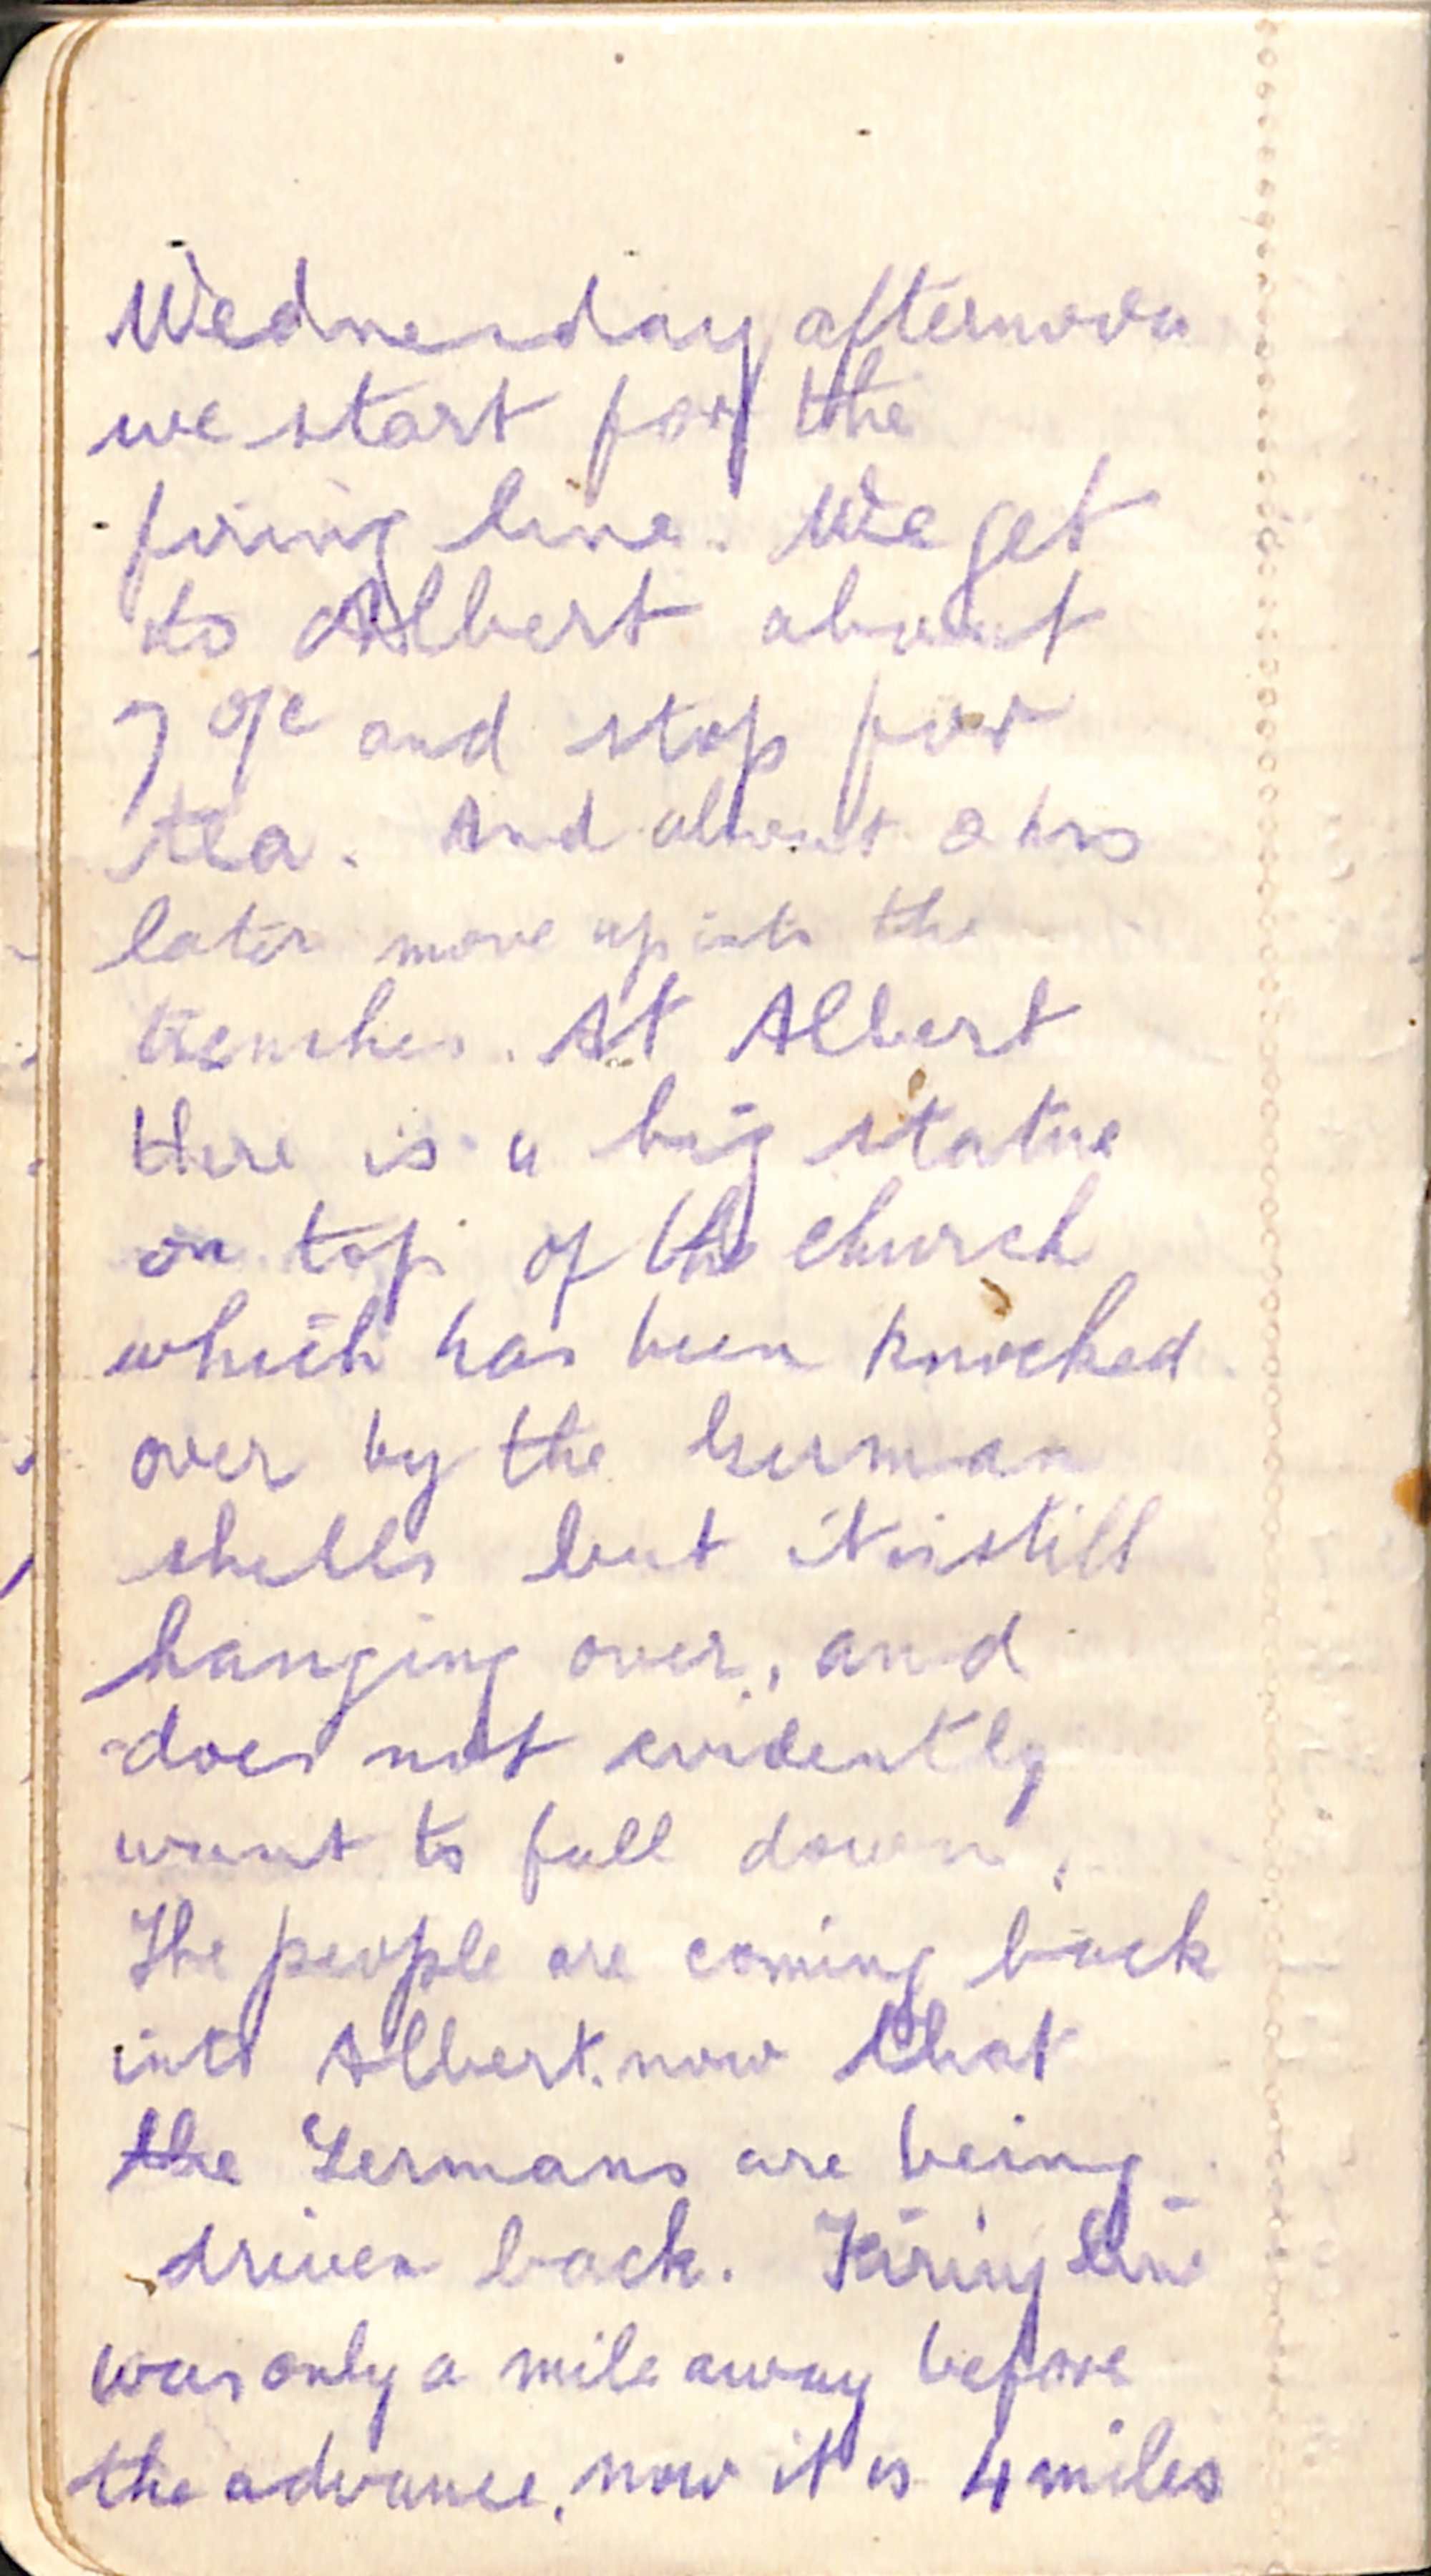 Wednesday afternoon
we start for the
firing line. We get
to Albert about
7 o/c and stop for
tea. And about 2 hrs
later move up into the
trenches. At Albert
there is a big statue
on top of the church
which has been knocked
over by the German
shells but it is still
hanging over, and
does not evidently
want to fall down.
The people are coming back
into Albert. now that
the Germans are being
driven back. Firing line
was only a mile away before
the advance, now it is 4 miles